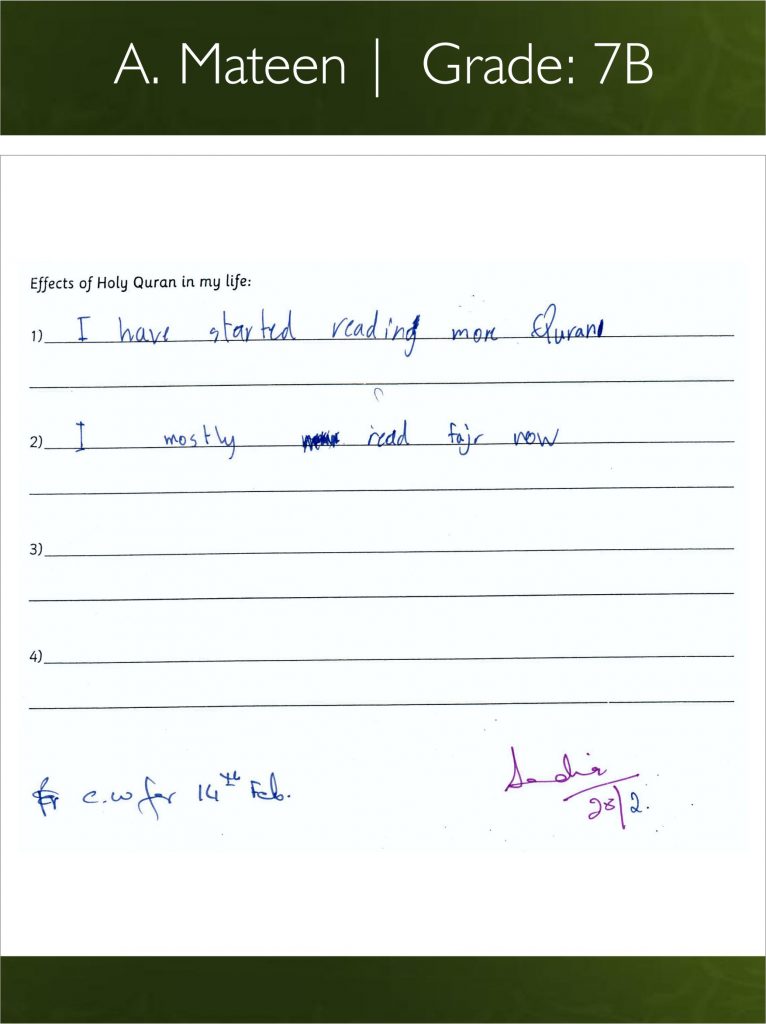 A. Mateen | Grade: 7B
Effects of Holy Quran in my life:
1) I have started reading more Quran
2) I mostly read fajr now
3)
4)
c.w for 14th Feb.
Sadia
28/2.